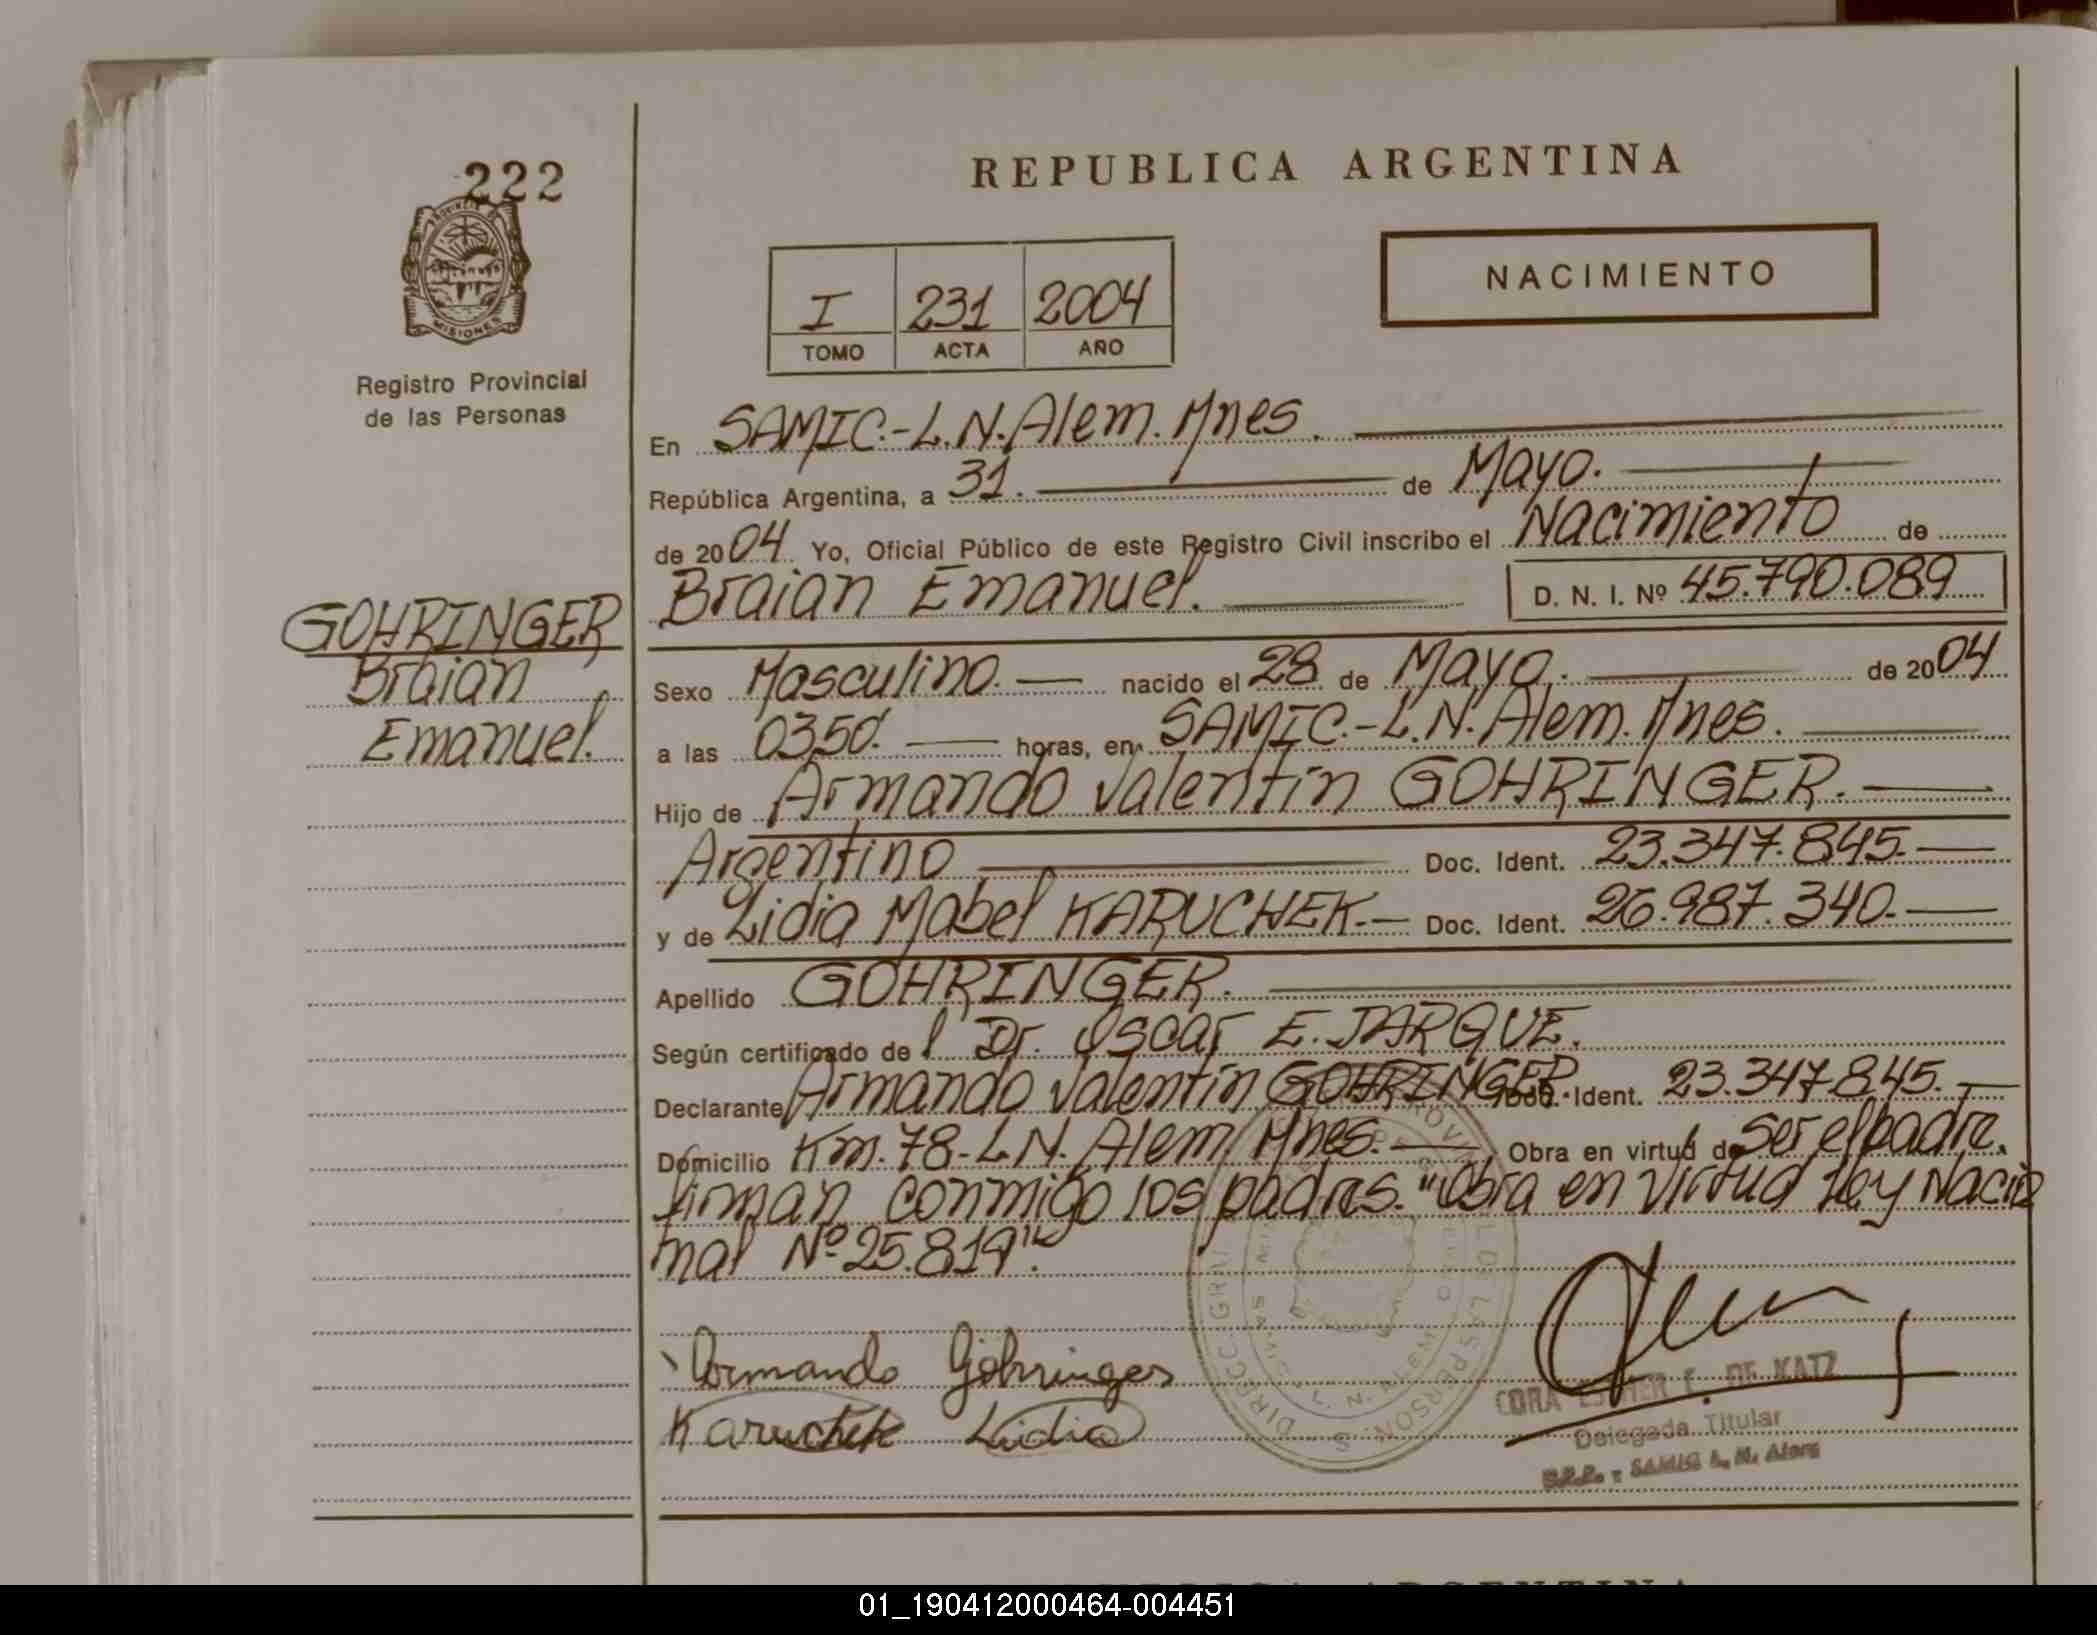 222
REPUBLICA ARGENTINA
NACIMIENTO
I 231 2004
TOMO ACTA AÑO
MISIONES
Registro Provincial
de las Personas
En SAMIC.-L.N.Alem.Mnes.
República Argentina, a 31. de Mayo.
de 2004 Yo, Oficial Público de este Registro Civil inscribo el Nacimiento de
Braian Emanuel. D. N. I. Nº 45.790.089
GOHRINGER
Braian
Emanuel.
Sexo Masculino. nacido el 28 de Mayo. de 2004
a las 0350. horas, en SAMIC.-L.N.Alem.Mnes.
Hijo de Armando Valentín GOHRINGER.
Argentino Doc. Ident. 23.347.845.
y de Lidia Mabel KARUCHEK. Doc. Ident. 26.987.340.
Apellido GOHRINGER.
Según certificado de l Dr. Oscar E. JARQUE.
Declarante Armando Valentín GOHRINGER. Doc. Ident. 23.347.845.
Domicilio Km.78-L.N. Alem. Mnes. Obra en virtud de Ser el padre.
firman conmigo los padres. "Obra en virtud Ley Nacio
nal Nº 25.819".
Armando Gohringer
Karuchek Lidia
CORA ESTHER F. DE KATZ
Delegada Titular
R.P.P. - SAMIC L. N. Alem
01_190412000464-004451